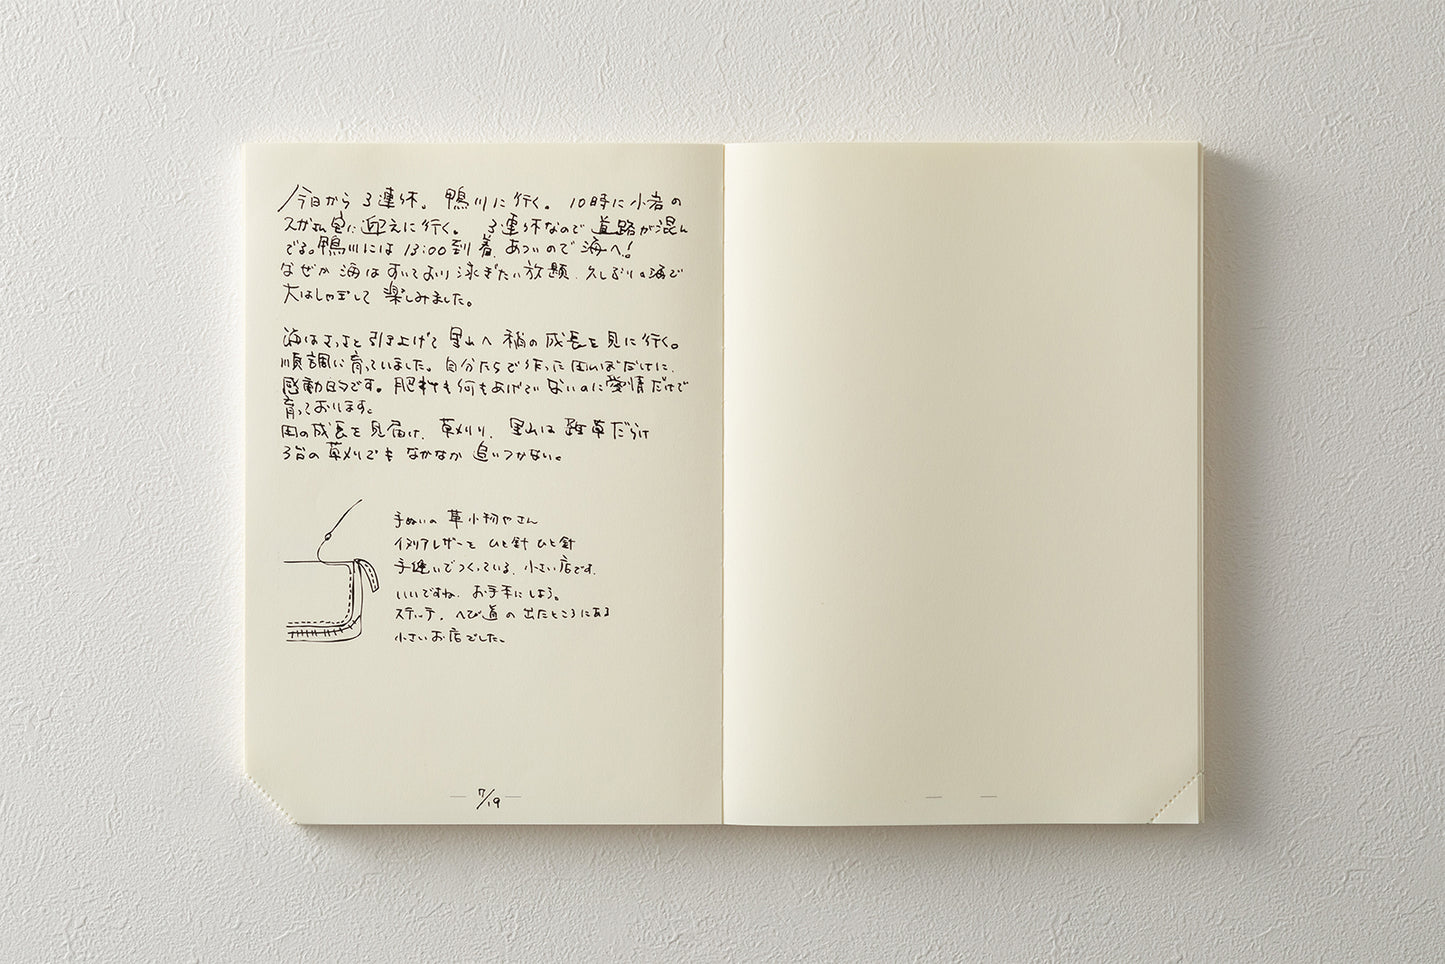 今日から 3連休。 鴨川に行く。 10時に小岩の
スガさん宅に迎えに行く。 3連休なので道路が混ん
でる。鴨川には 13:00到着、あついので海へ!
なぜか 海はすいており 泳ぎたい放題、久しぶりの海で
大はしゃぎして 楽しみました。
海はさっさと引き上げて 里山へ 稲の成長を見に行く。
順調に育っていました。自分たちで作った田んぼだけに、
感動ひとしおです。肥料も何もあげていないのに愛情だけで
育っております。
田の成長を見届け、草刈り、里山は雑草だらけ
3台の草刈りでも なかなか 追いつかない。
手ぬいの 革小物やさん
イタリアレザーを ひと針 ひと針
手縫いでつくっている、小さい店です。
いいですね、お手本にしよう。
ステッチ、へび道の出たところにある
小さいお店でした。
7/19